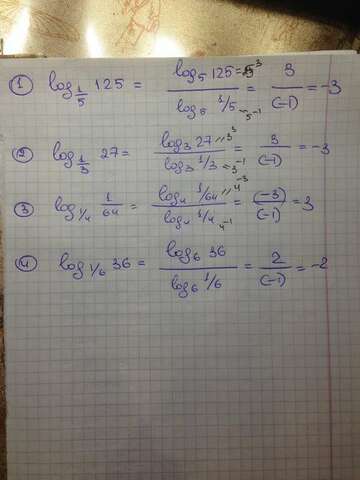 ① log_{1/5} 125 = \frac{log_5 125 = 5^3}{log_5 1/5 = 5^{-1}} = \frac{3}{(-1)} = -3
② log_{1/3} 27 = \frac{log_3 27 = 3^3}{log_3 1/3 = 3^{-1}} = \frac{3}{(-1)} = -3
③ log_{1/4} \frac{1}{64} = \frac{log_4 1/64 = 4^{-3}}{log_4 1/4 = 4^{-1}} = \frac{(-3)}{(-1)} = 3
④ log_{1/6} 36 = \frac{log_6 36}{log_6 1/6} = \frac{2}{(-1)} = -2